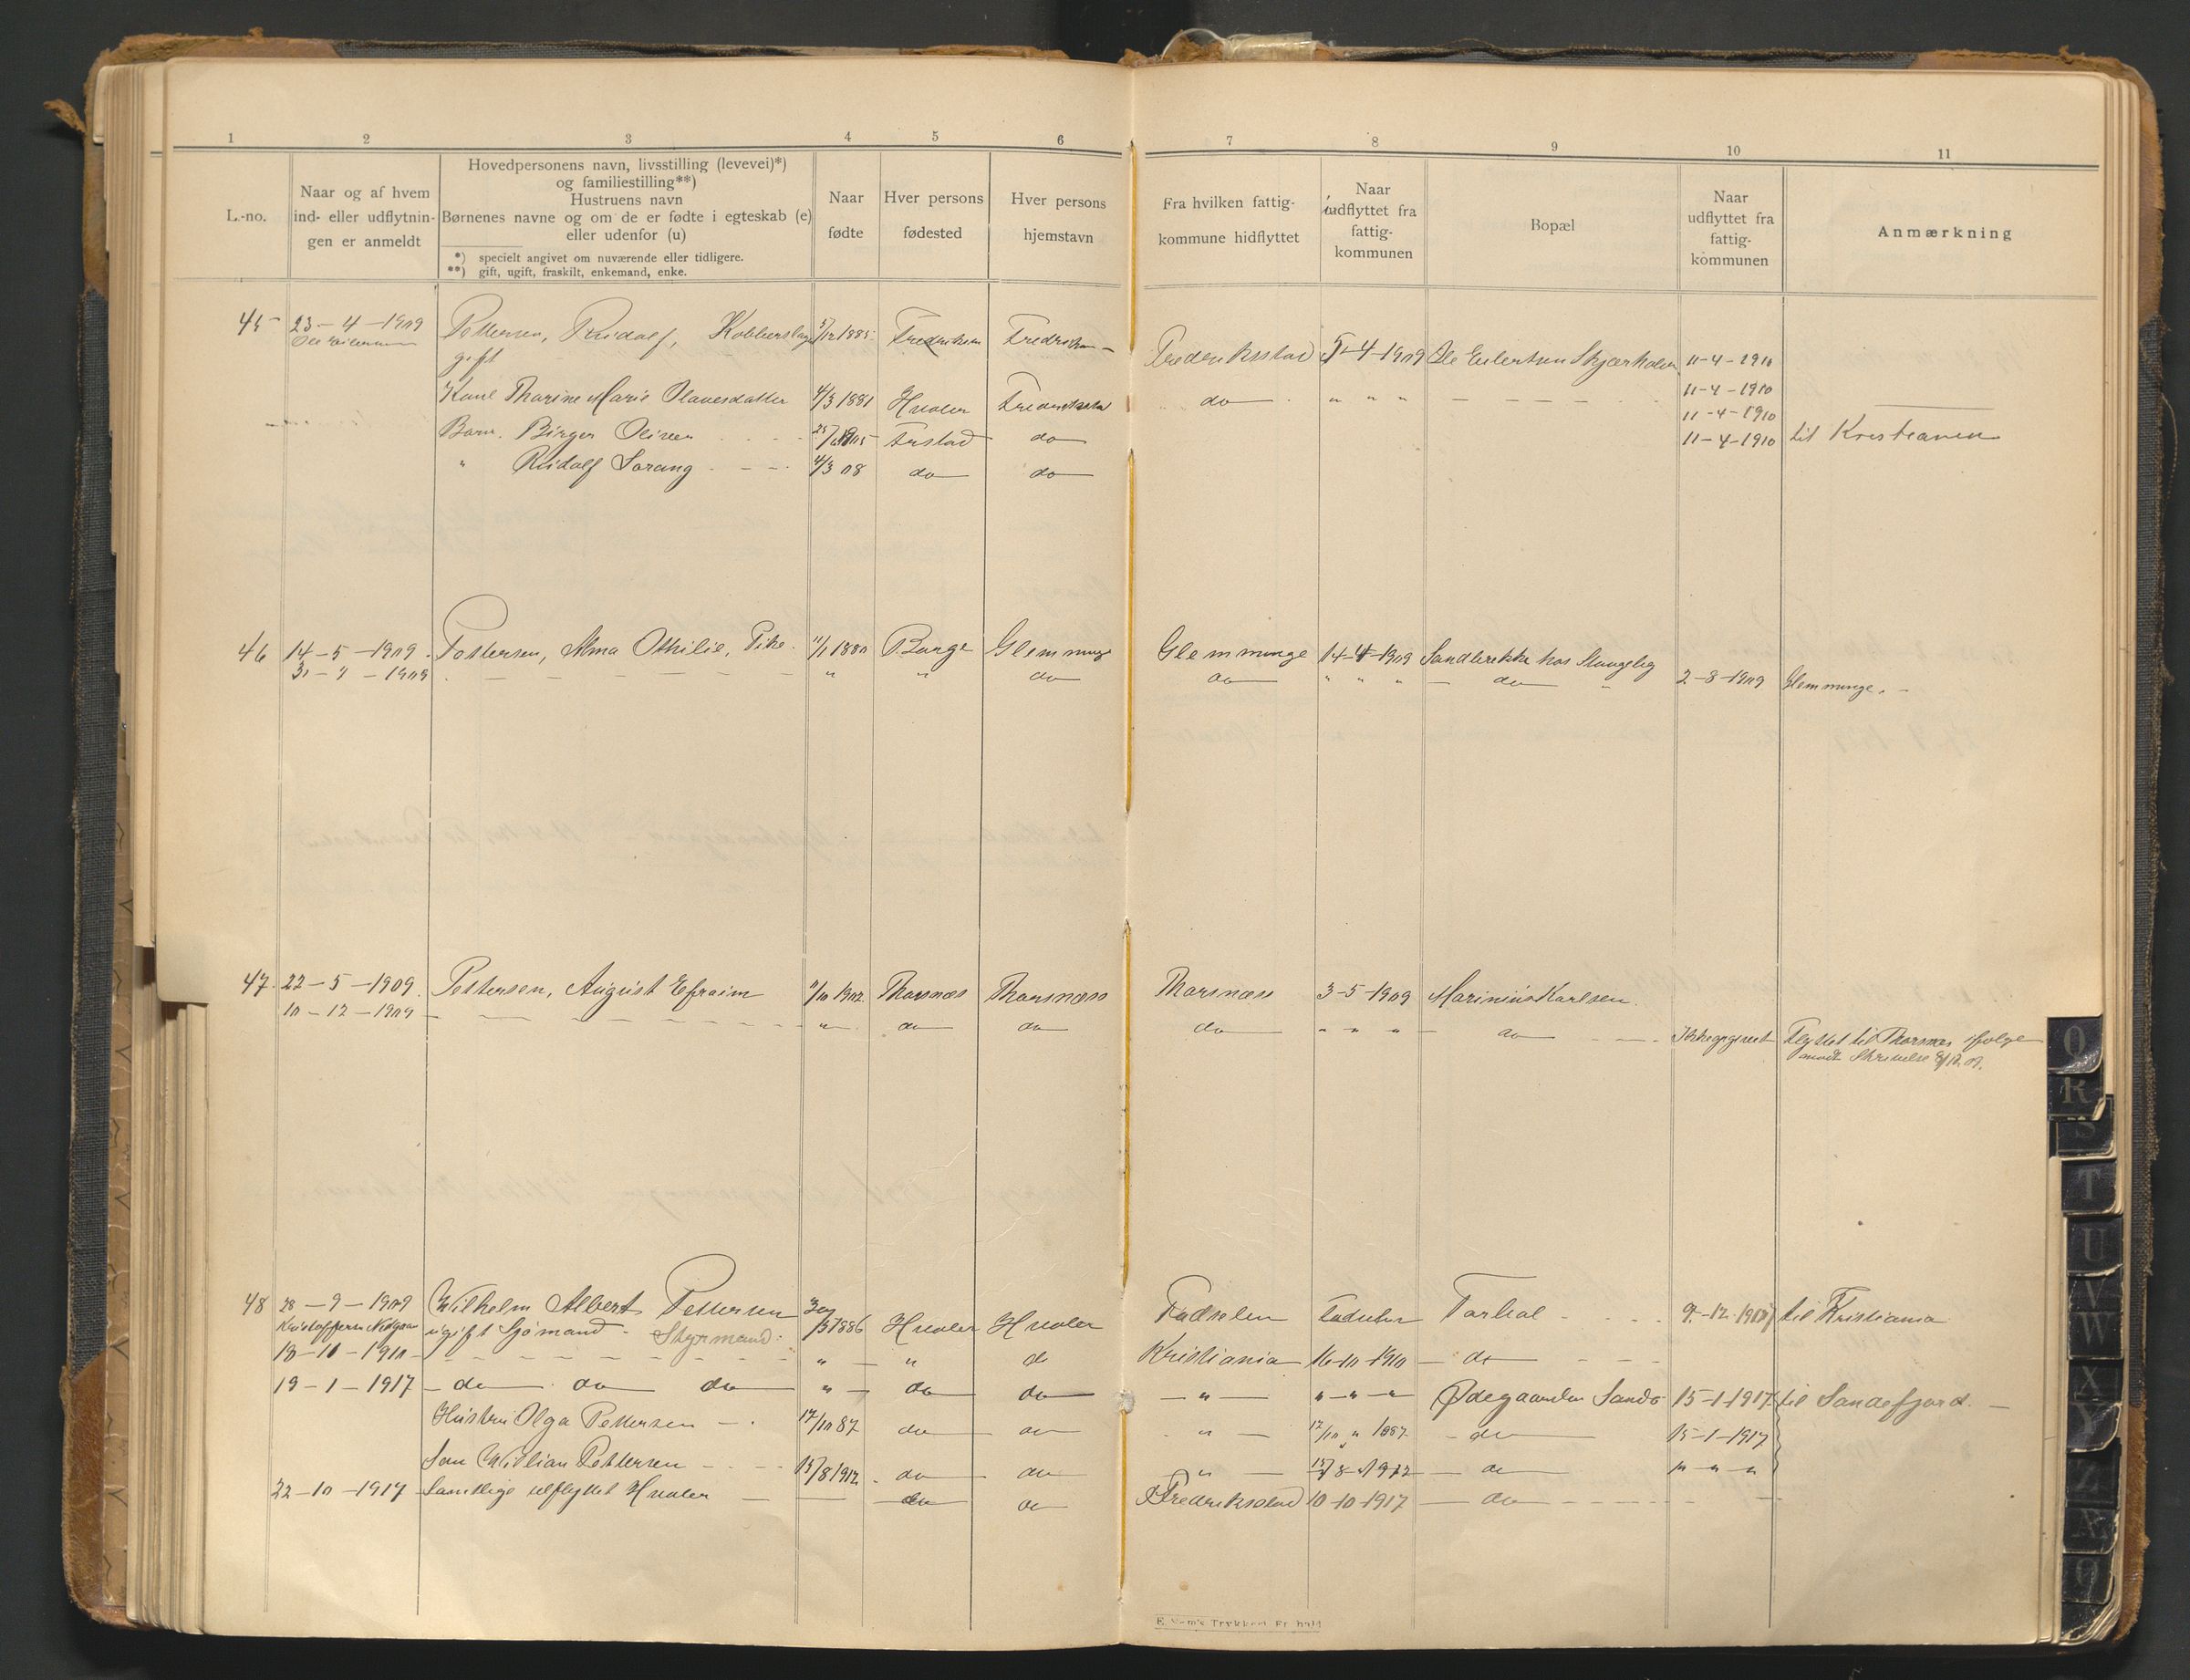 1 2 3 4 5 6 7 8 9 10 11
L.-no.
Naar og af hvem
ind- eller udflytnin-
gen er anmeldt
Hovedpersonens navn, livsstilling (levevei)*)
og familiestilling**)
Hustruens navn
Børnenes navne og om de er fødte i egteskab (e)
eller udenfor (u)
*) specielt angivet om nuværende eller tidligere.
**) gift, ugift, fraskilt, enkemand, enke.
Naar
fødte
Hver persons
fødested
Hver persons
hjemstavn
Fra hvilken fattig-
kommune hidflyttet
Naar
indflyttet fra
fattig-
kommunen
Bopæl
Naar
udflyttet fra
fattig-
kommunen
Anmærkning
45 23-4-1909 Pettersen, Rudolf, Kobberslag 5/12 1885 Fredrikstad Fredrikstad Frederiksstad 5-4-1909 Ole Eilertsen Skjærhalen 11-4-1910
gift
Kone Thorine Marie Olavesdatter 4/3 1881 Hvaler Fredrikstad do " " " 11-4-1910
11-4-1910
Barn. Birger Oliver Frstad do 11-4-1910 til Kristiania
" Rudolf Sorang 4/3 08 do do
46 14-5-1909 Pettersen, Alma Othilie, Pike 11/1 1880 Borge Glemminge Glemminge 14-4-1909 Sandbrekke hos Stangeby
31-7-1909 " " do do " " " do 2-8-1909 Glemminge.
47. 22-5-1909 Pettersen, August Efraim 11/10 1902. Thorsnæs Thorsnæss Thorsnæss 3-5-1909 Marinius Karlsen.
10-12-1909 " do do do " " " do Ikke opgivet Flyttet til Thorsnes ifølge
Skrivelse 8/12. 09.
48 28-9-1909 Wilhelm Albert Pettersen 30/3 1886 Hvaler Hvaler Fødselen Fødselen Torbal 9-12-1909 til Kristiania
Kristoffersen Nedgaard ugift Sjømand - Styrmand.
18-10-1910 " " do Kristiania 16-10-1910 do
19-1-1917 do do do " do do " " " " Ødegaarden Sandø 15-1-1917 til Sandefjord.
Hustru Olga Pettersen 17/10 87 do do " 17/10 " 1887 do 15-1-1917
Søn Willian Pettersen 15/8 1912 do do " 15/8-1912 do " " "
22-10-1917 Samtlige ilflyttet Hvaler do do Fredriksstad 10-10-1917 do
Q
R
S
T
U
V
W
X
Y
Z
Æ
Ø